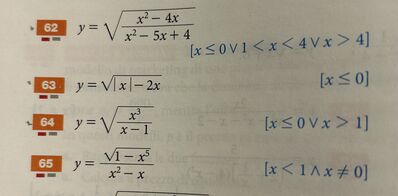 62 y = √((x² − 4x)/(x² − 5x + 4))
[x ≤ 0 ∨ 1 < x < 4 ∨ x > 4]
63 y = √(|x| − 2x) [x ≤ 0]
64 y = √(x³/(x − 1)) [x ≤ 0 ∨ x > 1]
65 y = √(1 − x⁵)/(x² − x) [x < 1 ∧ x ≠ 0]